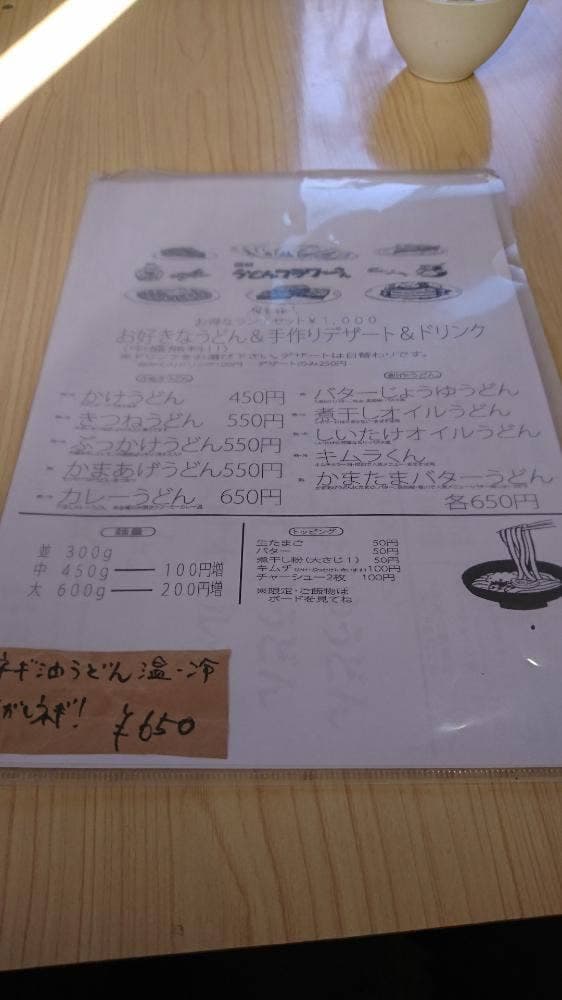 お得なランチセット¥1,000
お好きなうどん＆手作りデザート＆ドリンク
かけうどん 450円
きつねうどん 550円
ぶっかけうどん 550円
かまあげうどん 550円
カレーうどん 650円
創作うどん
バターじょうゆうどん
煮干しオイルうどん
しいたけオイルうどん
キムラくん
かまたまバターうどん
各650円
麺量
並 300g
中 450g 100円増
大 600g 200円増
トッピング
生たまご 50円
バター 50円
煮干し粉(大さじ1) 50円
キムチ 100円
チャーシュー2枚 100円
※限定・ご飯物は
ボードを見てね
ネギ油うどん 温・冷
がしネギ!
¥650